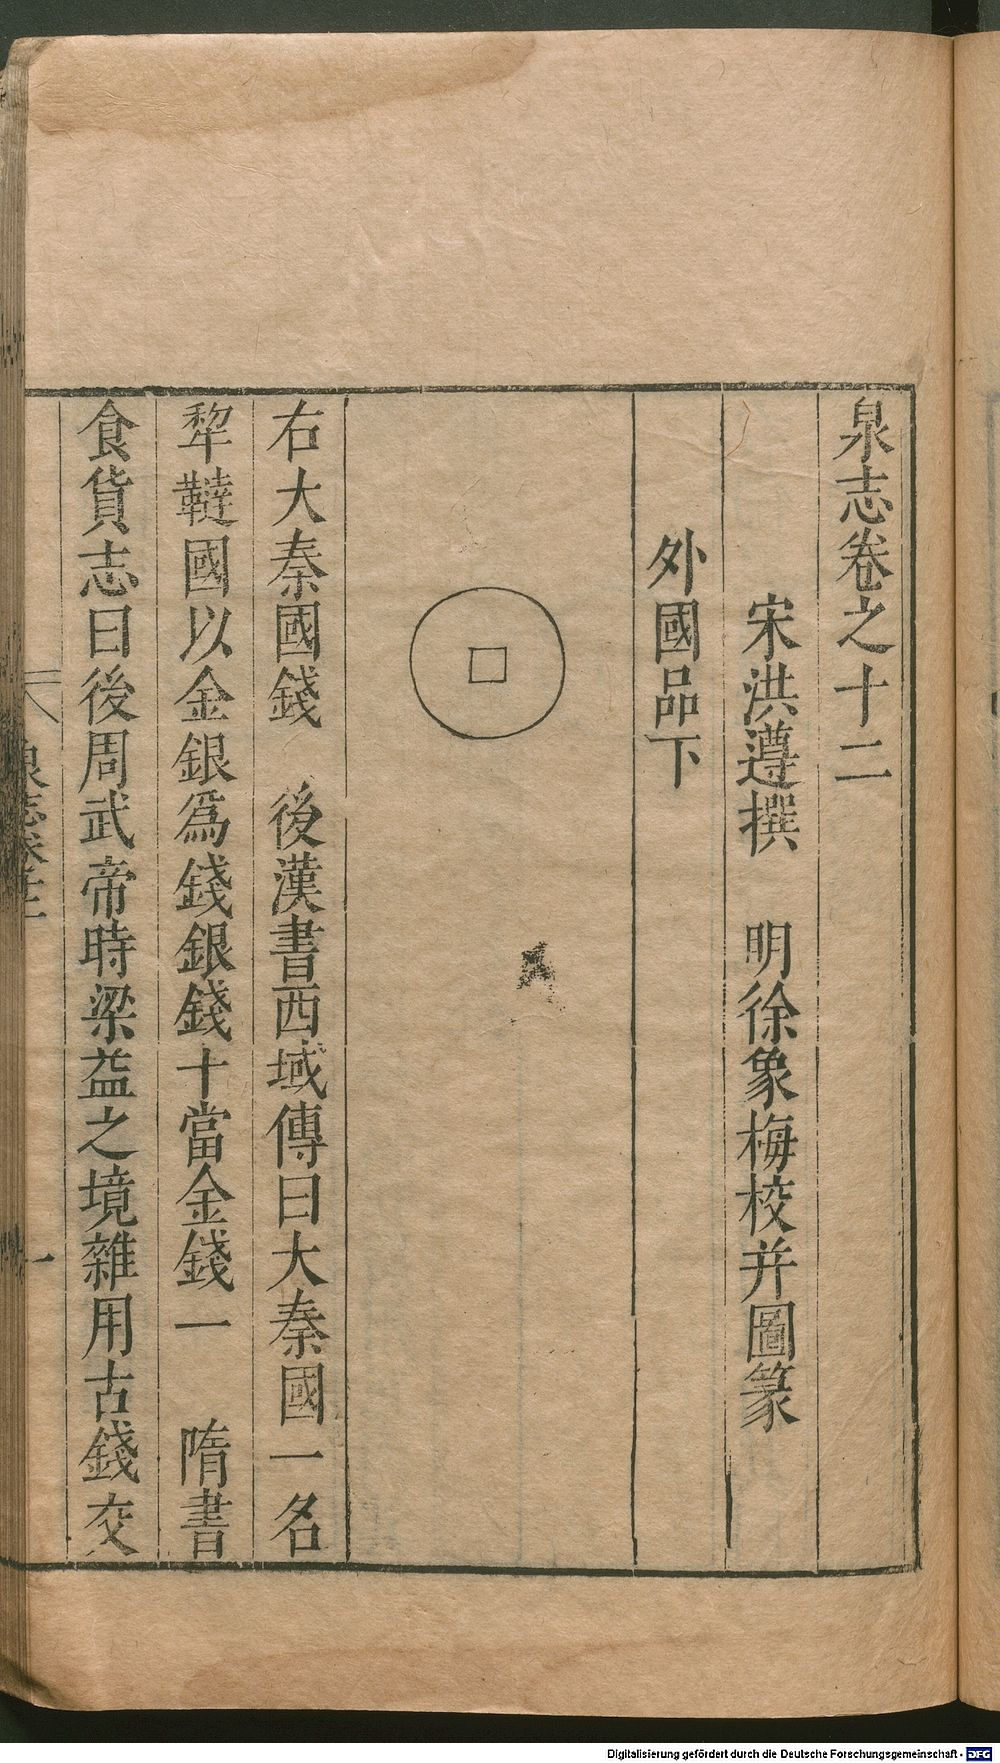 泉志卷之十二
宋洪遵撰　明徐象梅校并圖篆
外國品下
右大秦國錢　後漢書西域傳曰大秦國一名
犂鞬國以金銀爲錢銀錢十當金錢一　隋書
食貨志曰後周武帝時梁益之境雜用古錢交
泉志卷十二
一
Digitalisierung gefördert durch die Deutsche Forschungsgemeinschaft - DFG